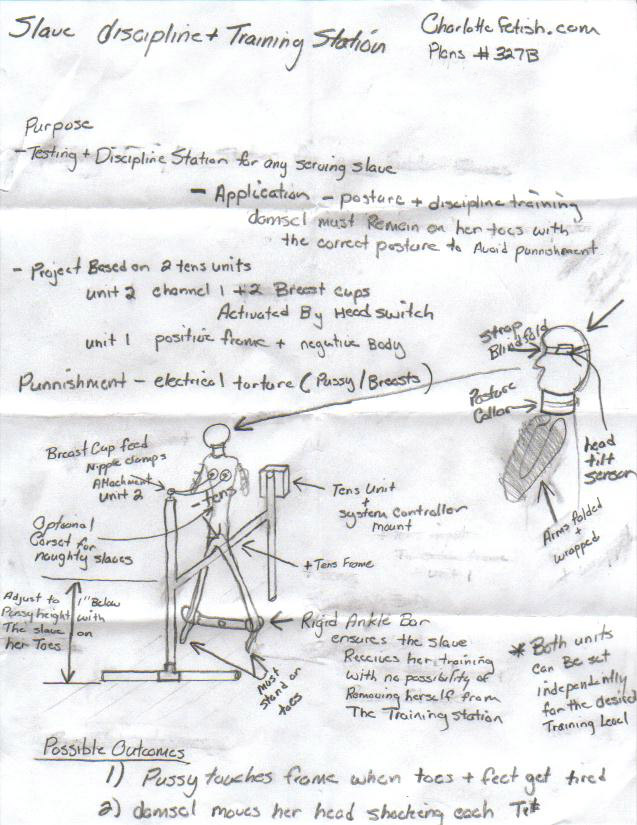 Slave discipline + Training Station
CharlotteFetish.com
Plans # 327B
Purpose
- Testing + Discipline Station for any serving slave
- Application - posture + discipline training
damsel must Remain on her toes with
the correct posture to Avoid punnishment
- Project Based on 2 tens units
unit 2 channel 1 + 2 Breast cups
Activated By Head switch
unit 1 positive frame + negative Body
Punnishment - electrical torture (Pussy/Breasts)
Strap
Blindfold
Posture
Collar
head
tilt
sensor
Arms folded
+
wrapped
Breast Cup feed
Nipple clamps
Attachment
unit 2
- Tens
Tens Unit
+
system Controller
mount
Optional
Corset for
naughty slaves
+ Tens Frame
Adjust to 1" Below
Pussy height with
The slave on
her Toes
Rigid Ankle Bar
ensures the slave
Receives her training
with no possibility of
Removing herself from
The Training station
Must
stand on
toes
* Both units
can Be set
independently
for the desired
Training Level
Possible Outcomes
1) Pussy touches frame when toes + feet get tired
2) damsel moves her head shocking each Tit